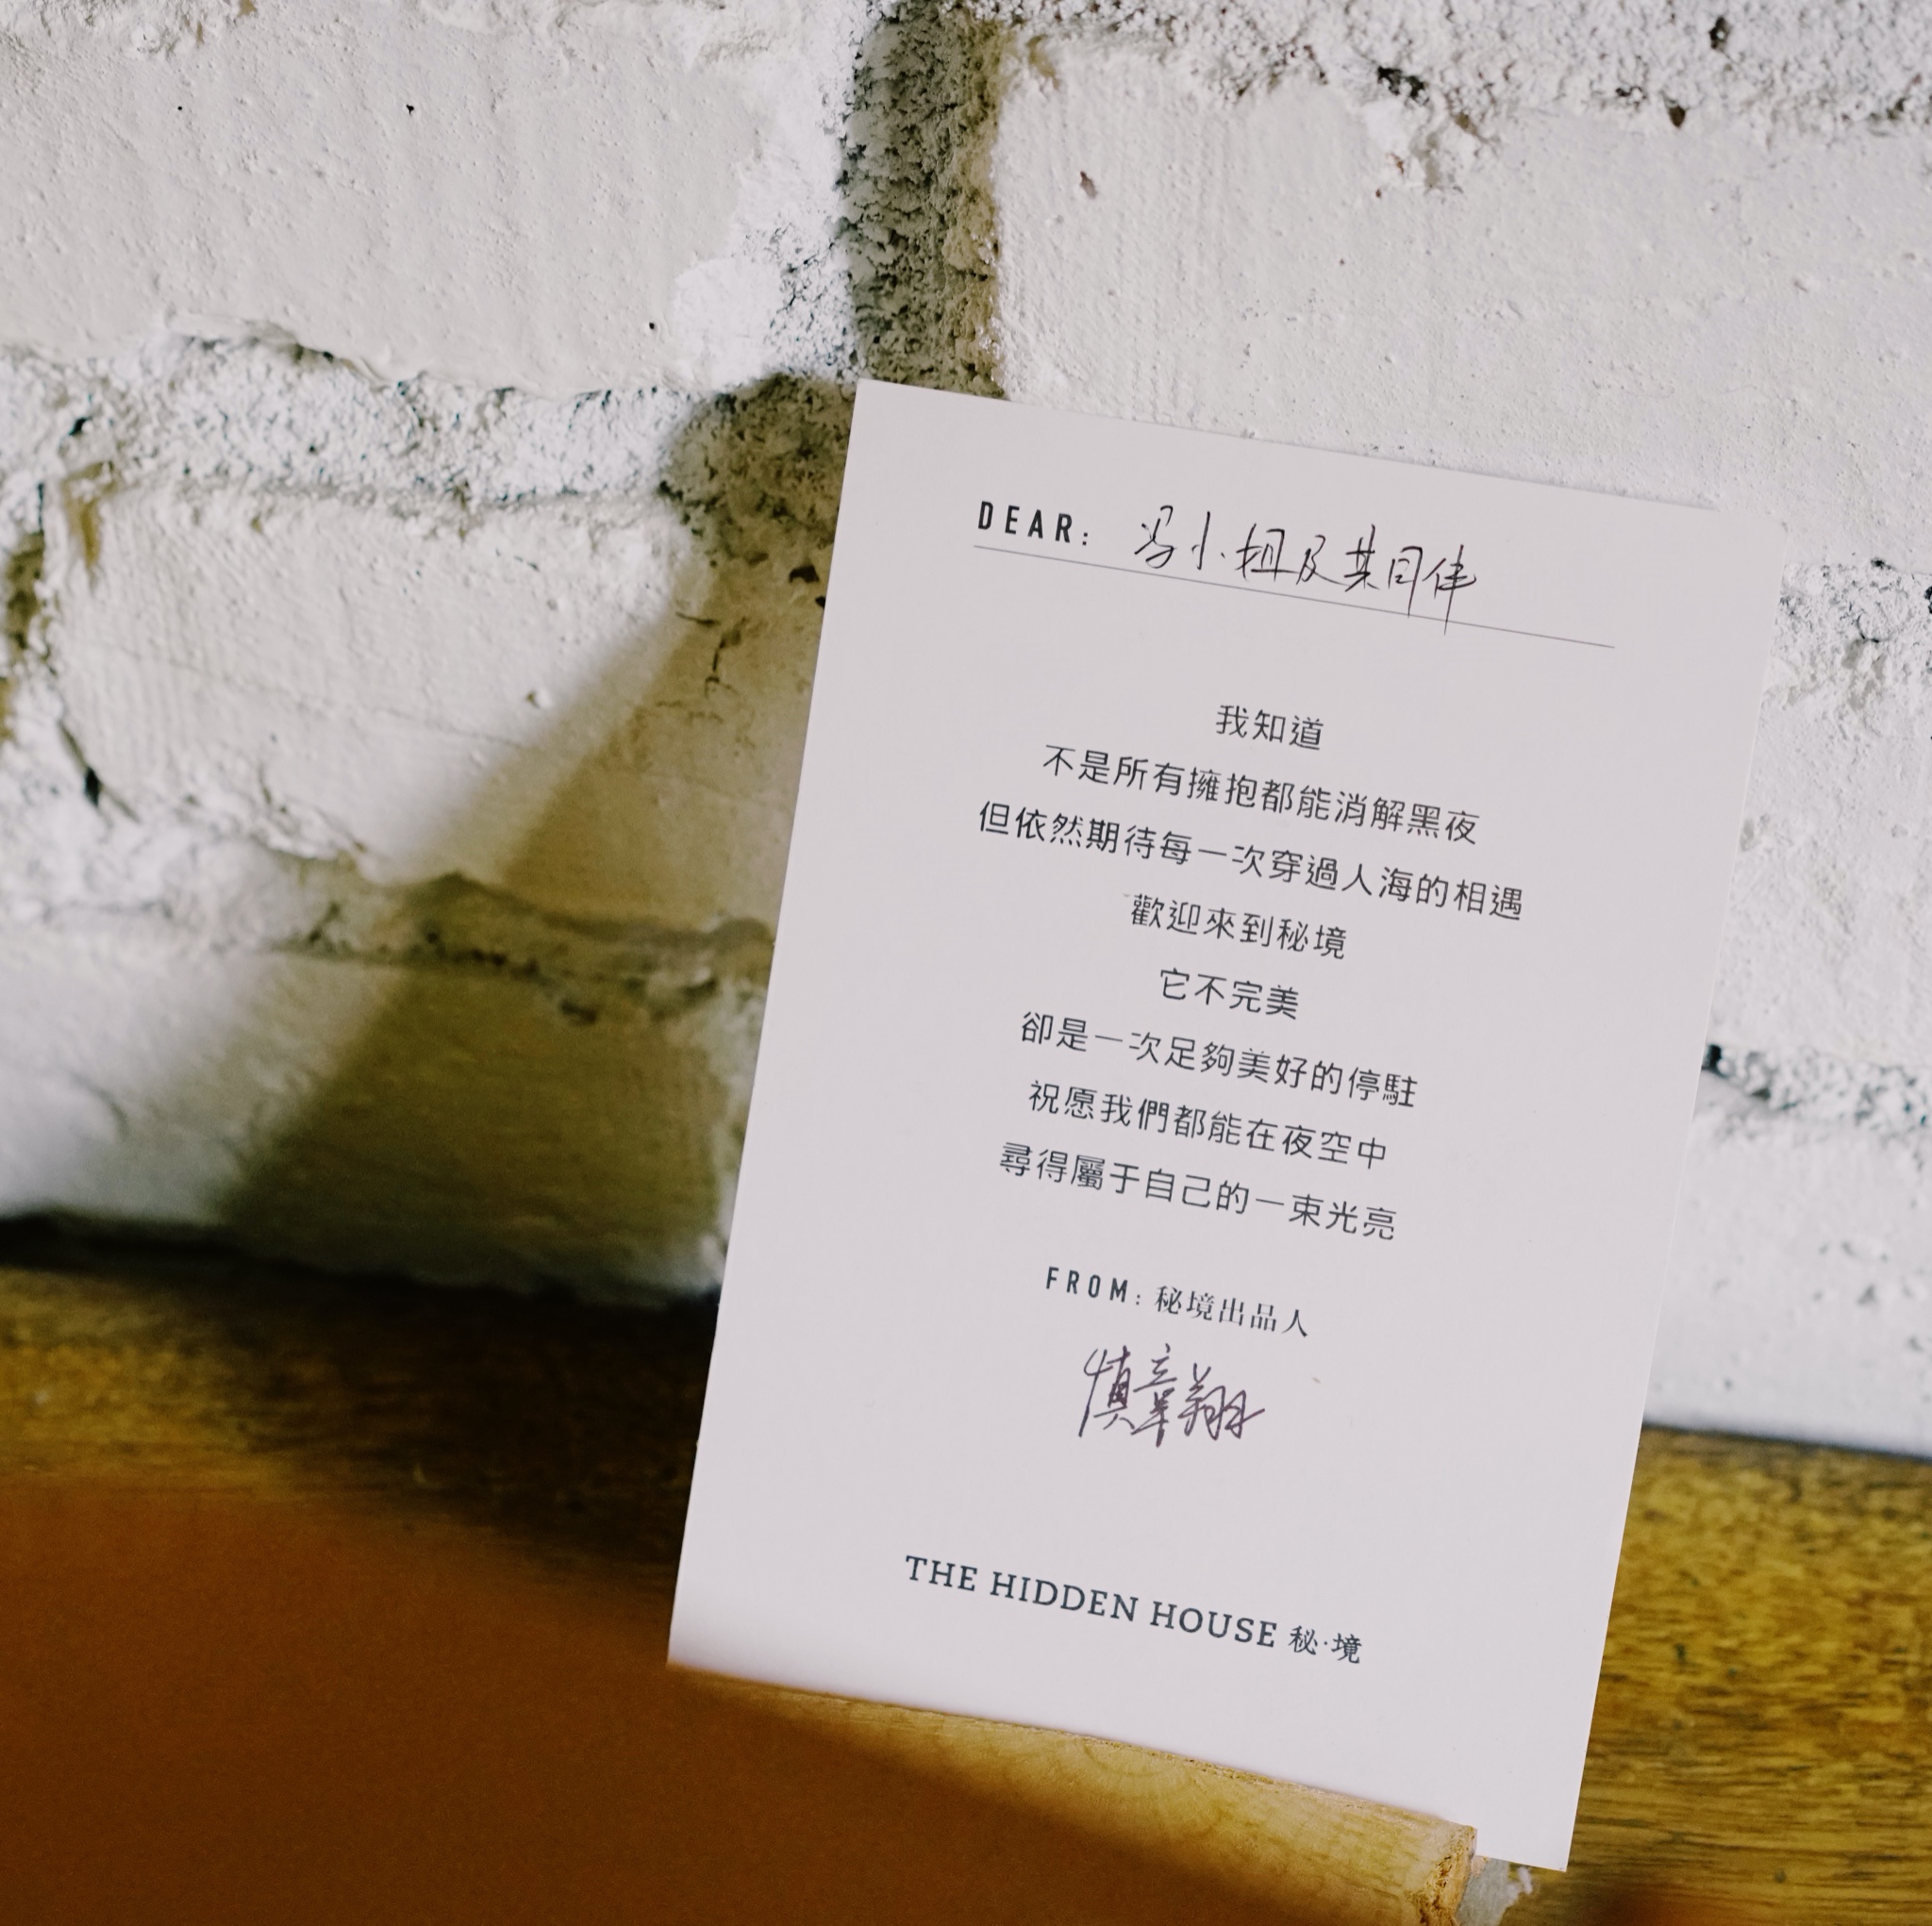 DEAR: 冯小姐及其同伴
我知道
不是所有擁抱都能消解黑夜
但依然期待每一次穿過人海的相遇
歡迎來到秘境
它不完美
卻是一次足夠美好的停駐
祝愿我們都能在夜空中
尋得屬于自己的一束光亮
FROM: 秘境出品人
慎章翔
THE HIDDEN HOUSE 秘·境